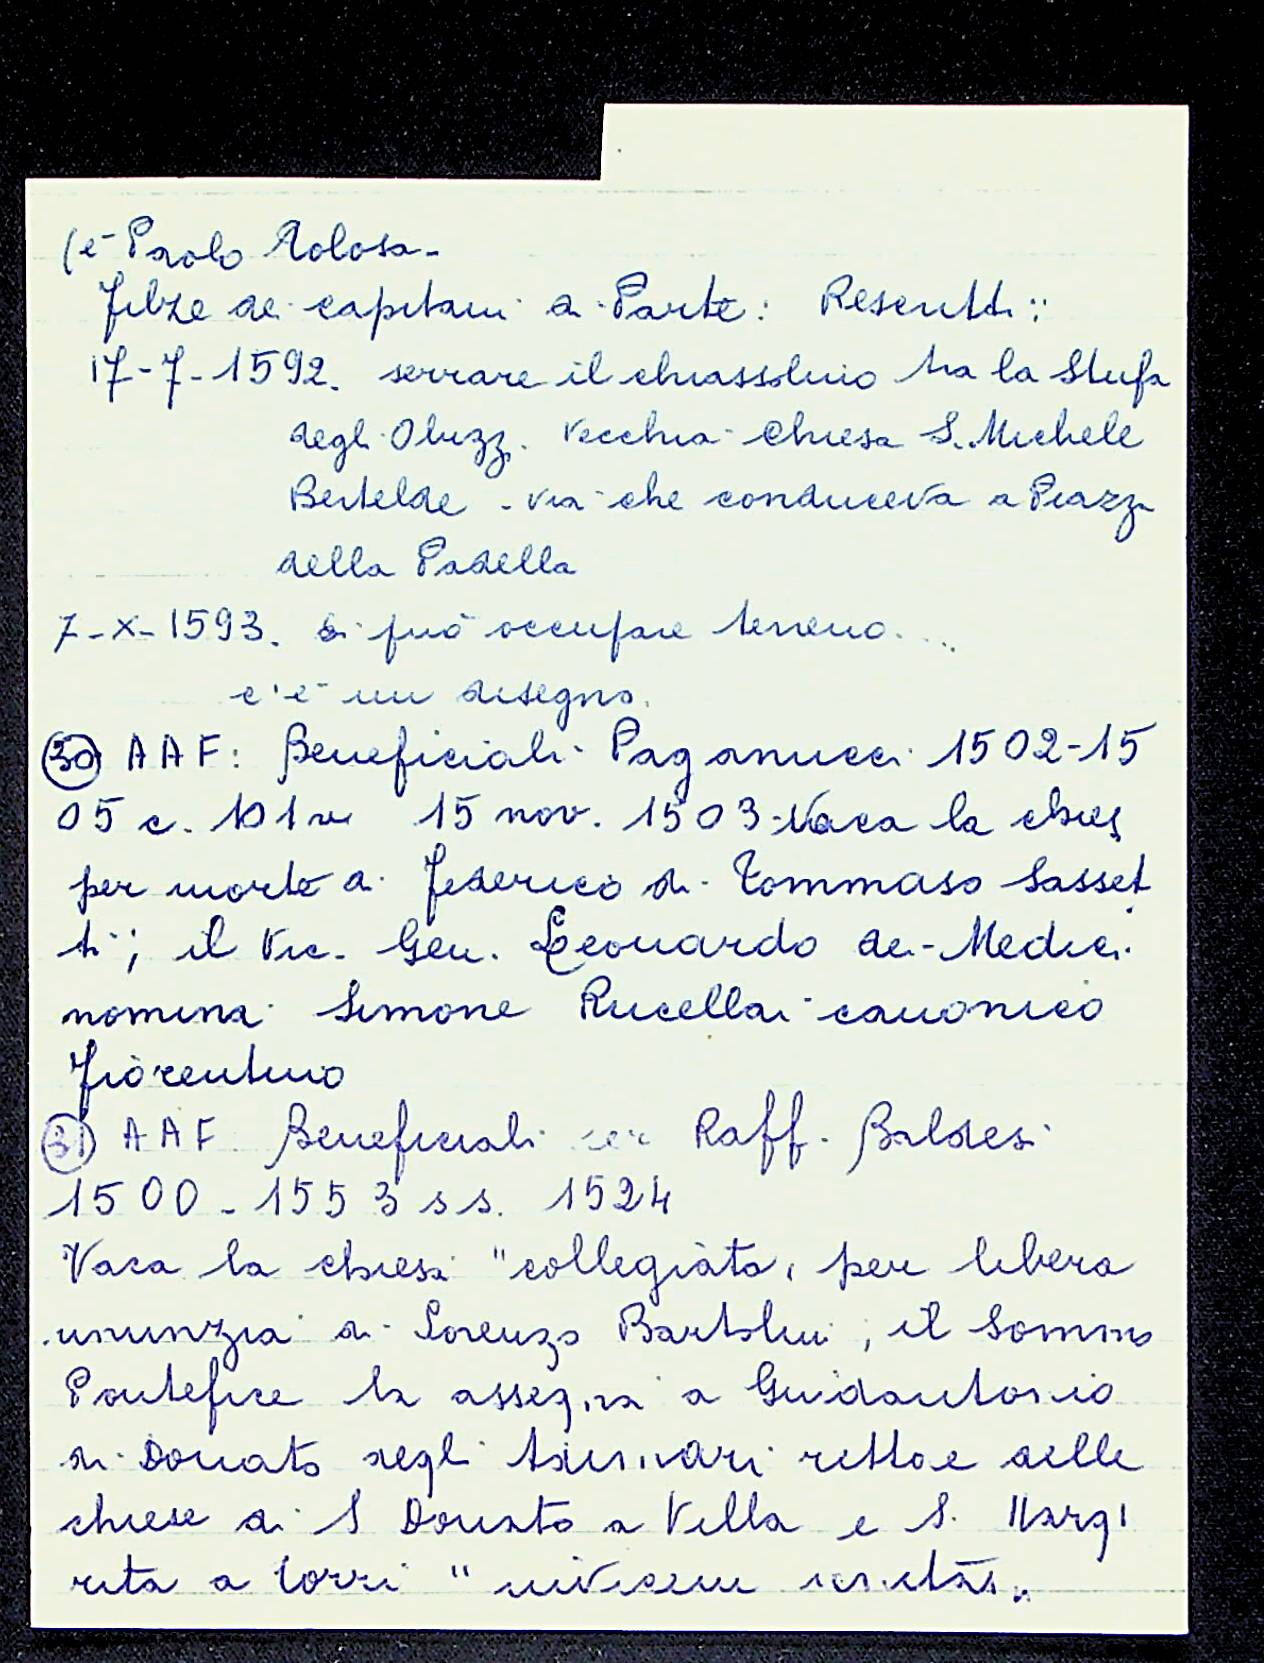 (è Paolo Rolosa-
Filze dei capitani di Parte: Rescritti:
17-7-1592. serrare il chiassolino tra la Stufa
degli Obizzi. Vecchia Chiesa S. Michele
Bertelde - via che conduceva a Piazza
della Padella
7-X-1593. Si può occupare terreno...
c'è un disegno.
(30) AAF: Beneficiali Paganucci 1502-15
05 c. 101v 15 nov. 1503. Vaca la chies
per morte di Federico di Tommaso Sasset
ti; il Vic. Gen. Leonardo dei Medici
nomina Simone Rucellai canonico
fiorentino
(31) AAF. Beneficiali ser Raff. Baldesi
1500-1553 ss. 1524
Vaca la chiesa "collegiata, per libera
rinunzia di Lorenzo Bartolini; il Sommo
Pontefice la assegna a Guidantonio
di Donato degli Adimari rettore delle
chiese di S Donato a Villa e S. Marg
rita a Torri " invicem